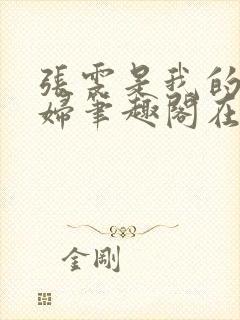 張雲是我的
婦筆趣閣在
金剛